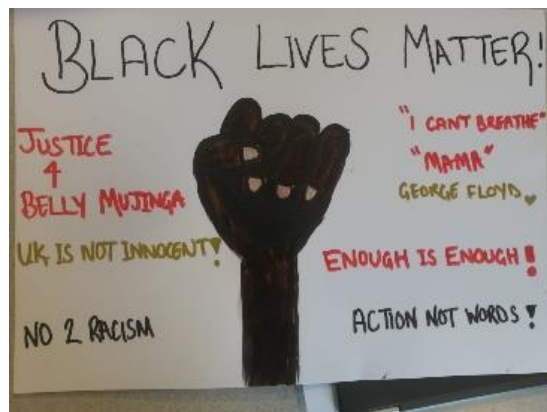 BLACK LIVES MATTER!
JUSTICE
4
BELLY MUJINGA
UK IS NOT INNOCENT!
NO 2 RACISM
"I CANT BREATHE"
"MAMA"
GEORGE FLOYD
ENOUGH IS ENOUGH!
ACTION NOT WORDS!